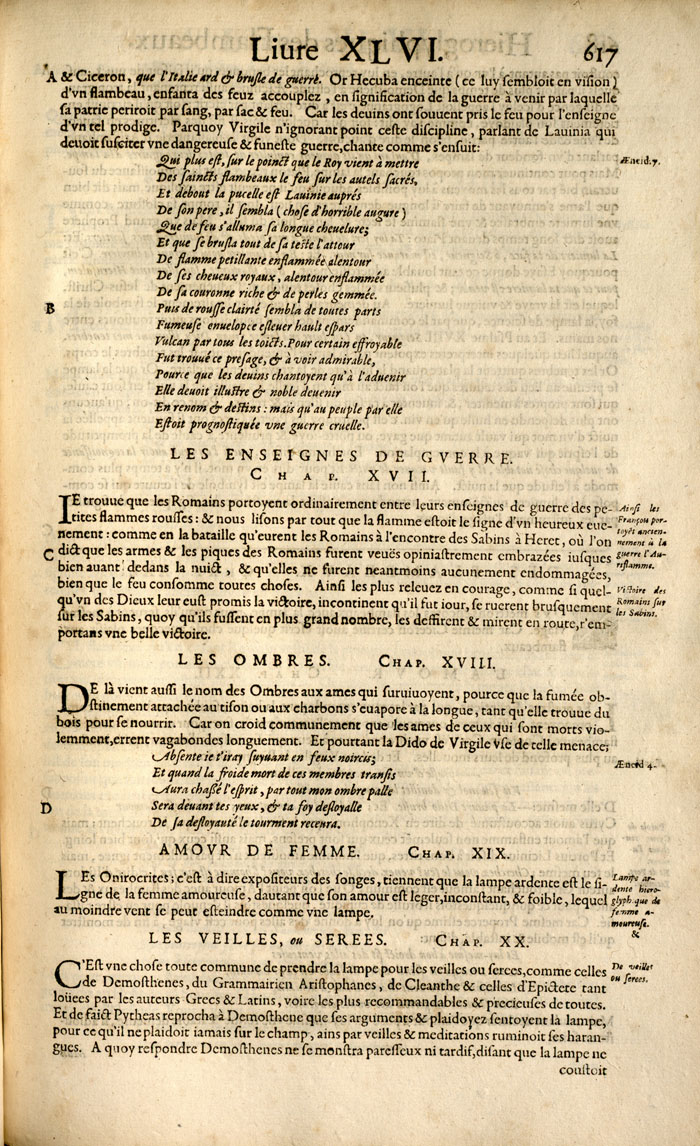 Liure XLVI. 617
A & Ciceron, que l'Italie ard & brusle de guerre. Or Hecuba enceinte (ce luy sembloit en vision)
d'vn flambeau, enfanta des feuz accouplez, en signification de la guerre à venir par laquelle
sa patrie periroit par sang, par sac & feu. Car les deuins ont souuent pris le feu pour l'enseigne
d'vn tel prodige. Parquoy Virgile n'ignorant point ceste discipline, parlant de Lauinia qui
deuoit susciter vne dangereuse & funeste guerre, chante comme s'ensuit:
Qui plus est, sur le poinct que le Roy vient à mettre
Æneid. 7.
Des saincts flambeaux le feu sur les autels sacrés,
Et debout la pucelle est Lauinie auprés
De son pere, il sembla (chose d'horrible augure)
Que de feu s'alluma sa longue cheuelure;
Et que se brusla tout de sa teste l'attour
De flamme petillante enflammée alentour
De ses cheueux royaux, alentour enflammée
De sa couronne riche & de perles gemmée.
B
Puis de rousse clairté sembla de toutes parts
Fumeuse enuelopce esleuer hault espars
Vulcan par tous les toicts. Pour certain effroyable
Fut trouué ce presage, & à voir admirable,
Pource que les deuins chantoyent qu'à l'aduenir
Elle deuoit illustre & noble deuenir
En renom & destins: mais qu'au peuple par elle
Estoit prognostiquée vne guerre cruelle.
LES ENSEIGNES DE GVERRE.
CHAP. XVII.
IE trouue que les Romains portoyent ordinairement entre leurs enseignes de guerre des pe-
tites flammes rousses: & nous lisons par tout que la flamme estoit le signe d'vn heureux eue-
nement: comme en la bataille qu'eurent les Romains à l'encontre des Sabins à Heret, où l'on
C dict que les armes & les piques des Romains furent veuës opiniastrement embrazées iusques
bien auant dedans la nuict, & qu'elles ne furent neantmoins aucunement endommagées,
bien que le feu consomme toutes choses. Ainsi les plus releuez en courage, comme si quel-
qu'vn des Dieux leur eust promis la victoire, incontinent qu'il fut iour, se ruerent brusquement
sur les Sabins, quoy qu'ils fussent en plus grand nombre, les deffirent & mirent en route, r'em-
portans vne belle victoire.
Ainsi les
François por-
toyēt ancien-
nement à la
guerre l'Au-
riflamme.
Victoire des
Romains sur
les Sabins.
LES OMBRES. CHAP. XVIII.
DE là vient aussi le nom des Ombres aux ames qui suruiuoyent, pource que la fumée ob-
stinement attachée au tison ou aux charbons s'euapore à la longue, tant qu'elle trouue du
bois pour se nourrir. Car on croid communement que les ames de ceux qui sont morts vio-
lemment, errent vagabondes longuement. Et pourtant la Dido de Virgile vse de telle menace;
Absente ie t'iray suyuant en feux noircis;
Æneid 4.
Et quand la froide mort de ces membres transis
Aura chassé l'esprit, par tout mon ombre palle
D
Sera deuant tes yeux, & ta foy desloyalle
De sa desloyauté le tourment receura.
AMOVR DE FEMME. CHAP. XIX.
LEs Onirocrites; c'est à dire expositeurs des songes, tiennent que la lampe ardente est le si-
gne de la femme amoureuse, dautant que son amour est leger, inconstant, & foible, lequel
au moindre vent se peut esteindre comme vne lampe.
Lampe ar-
dente hiero-
glyphique de
femme a-
moureuse.
&
LES VEILLES, ou SEREES. CHAP. XX.
C'Est vne chose toute commune de prendre la lampe pour les veilles ou serees, comme celles
de Demosthenes, du Grammairien Aristophanes, de Cleanthe & celles d'Epictete tant
loüees par les auteurs Grecs & Latins, voire les plus recommandables & precieuses de toutes.
Et de faict Pytheas reprocha à Demosthene que ses arguments & plaidoyez sentoyent la lampe,
pour ce qu'il ne plaidoit iamais sur le champ, ains par veilles & meditations ruminoit ses haran-
gues. A quoy respondre Demosthenes ne se monstra paresseux ni tardif, disant que la lampe ne
De veilles
ou serees.
coustoit